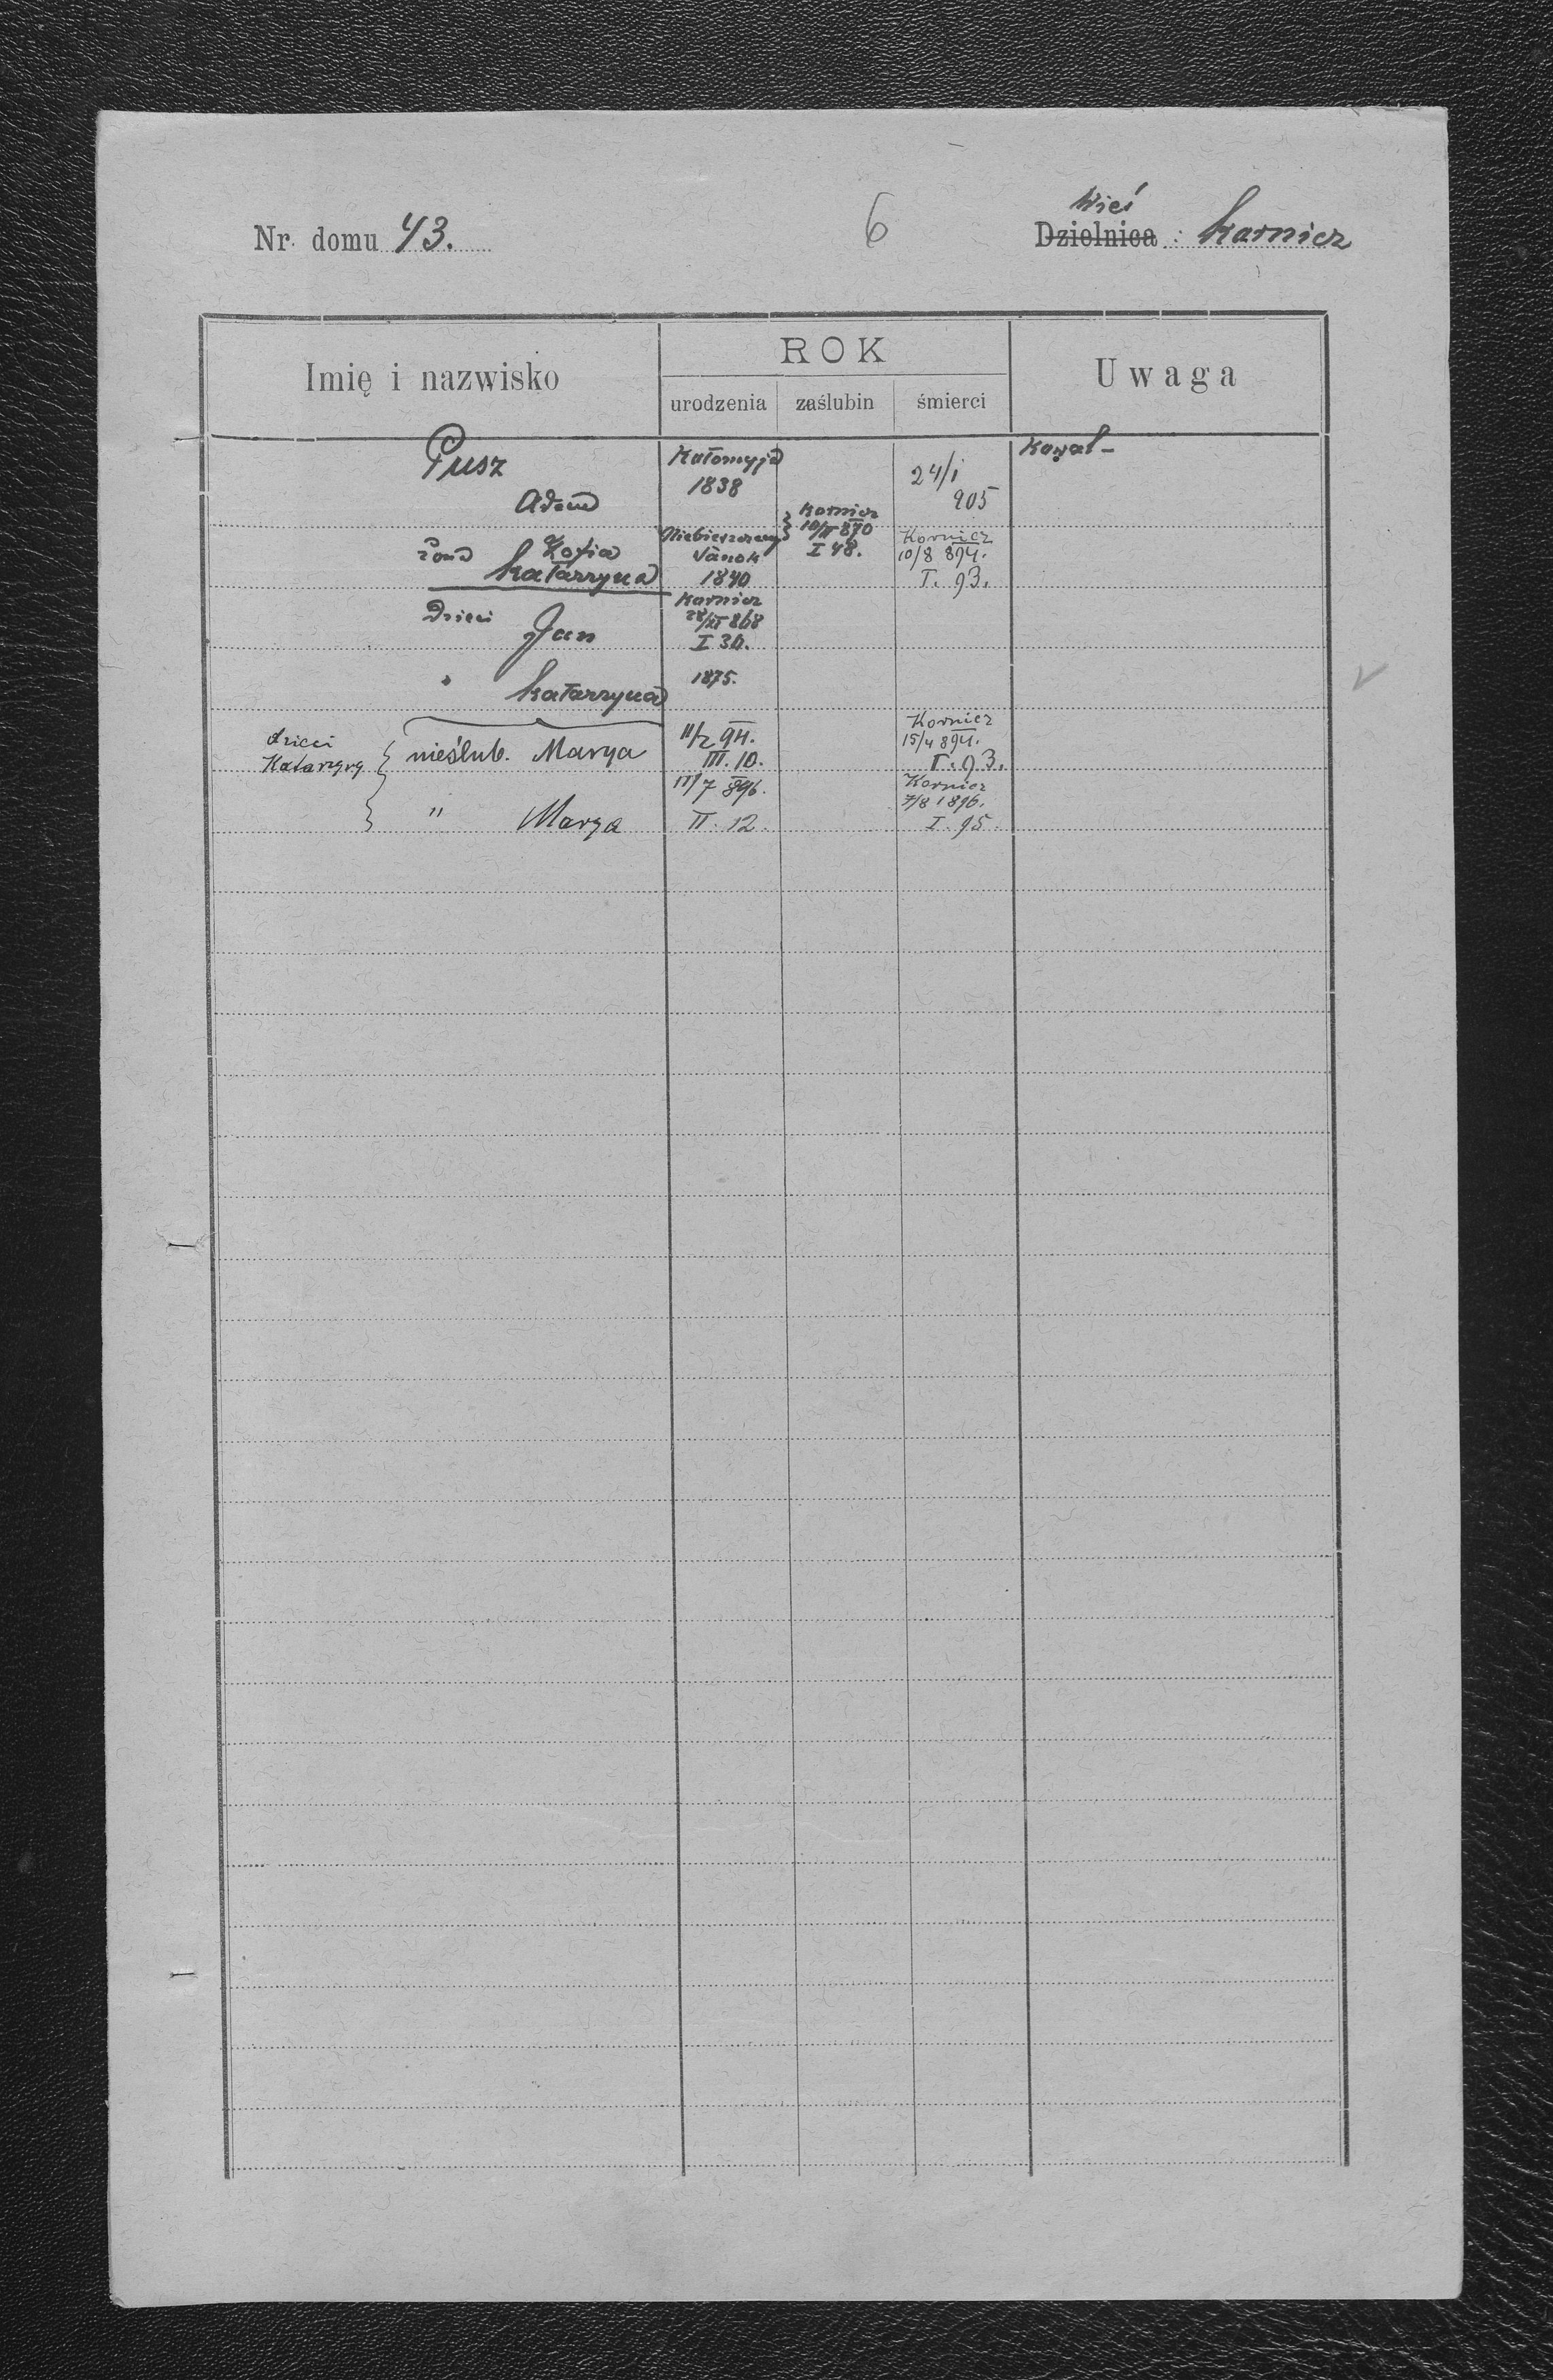 Wieś
Nr. domu 43. 6 Dzielnica : Karnicz
Imię i nazwisko ROK Uwaga
urodzenia zaślubin śmierci
Pusz Kołomyja Kowal -
Adam 1838 24/I 905
Karnicz
10/II 870
I 48.
żona Zofia Sanok Kornicz
Katarzyna 1840 10/8 894.
I. 93.
Dzieci Jan Karnicz
28/XI 868
I 30.
" Katarzyna 1875.
dzieci
Katarzyny
nieślub. Marya 11/2 94. Kornicz
III. 10. 15/4 894.
I. 93.
" Marya 17/7 896. Kornicz
II. 12. 7/8 1896.
I. 95.